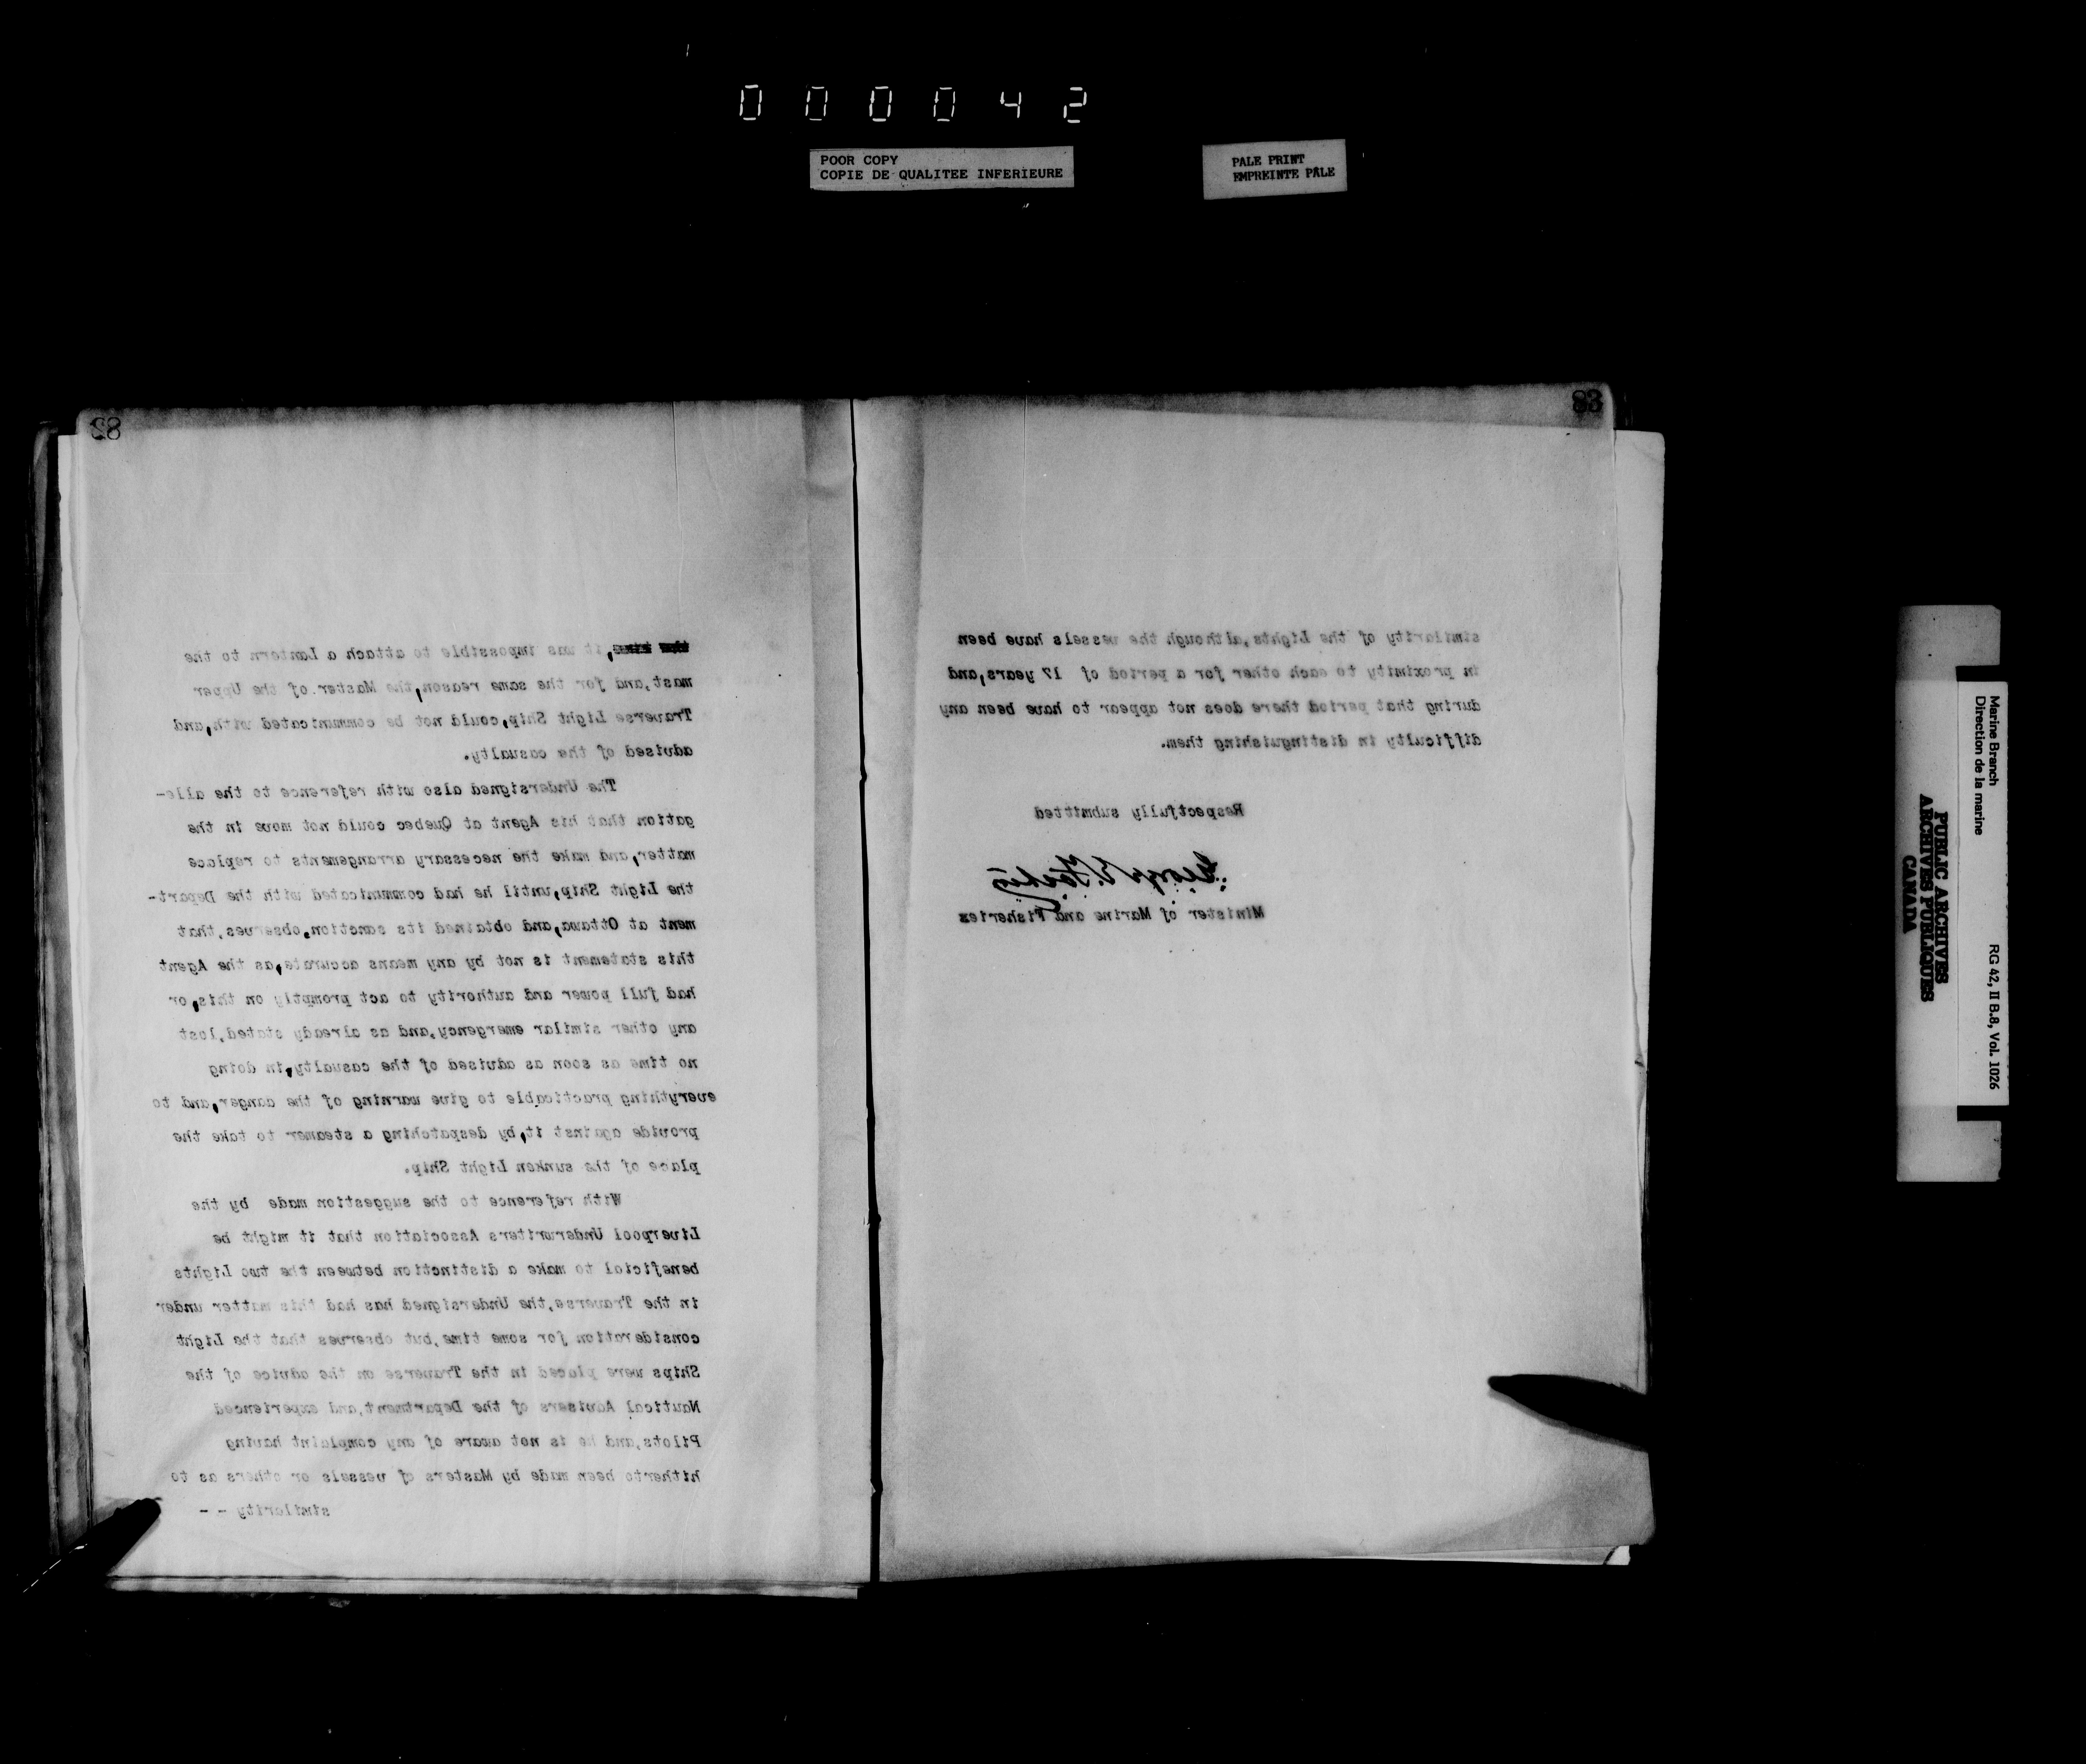 0 0 0 0 4 2
POOR COPY
COPIE DE QUALITEE INFERIEURE
PALE PRINT
EMPREINTE PÂLE
82
it was impossible to attach a Lantern to the
mast, and for the same reason, the Master of the Upper
Traverse Light Ship, could not be communicated with, and
advised of the casualty.
The Undersigned also with reference to the alle-
gation that his Agent at Quebec could not move in the
matter, and make the necessary arrangements to replace
the Light Ship, until he had communicated with the Depart-
ment at Ottawa, and obtained its sanction, observes, that
this statement is not by any means accurate, as the Agent
had full power and authority to act promptly on this, or
any other similar emergency, and as already stated, lost
no time as soon as advised of the casualty, in doing
everything practicable to give warning of the danger, and to
provide against it, by despatching a steamer to take the
place of the sunken Light Ship.
With reference to the suggestion made by the
Liverpool Underwriters Association that it might be
beneficial to make a distinction between the two Lights
in the Traverse, the Undersigned has had this matter under
consideration for some time, but observes that the Light
Ships were placed in the Traverse on the advice of the
Nautical Advisers of the Department, and experienced
Pilots, and he is not aware of any complaint having
hitherto been made by Masters of vessels or others as to
similarity - -
83
similarity of the Lights, although the vessels have been
in proximity to each other for a period of 17 years, and
during that period there does not appear to have been any
difficulty in distinguishing them.
Respectfully submitted
George E. Foster
Minister of Marine and Fisheries
Marine Branch
Direction de la marine
RG 42, II B.8, Vol. 1026
PUBLIC ARCHIVES
ARCHIVES PUBLIQUES
CANADA